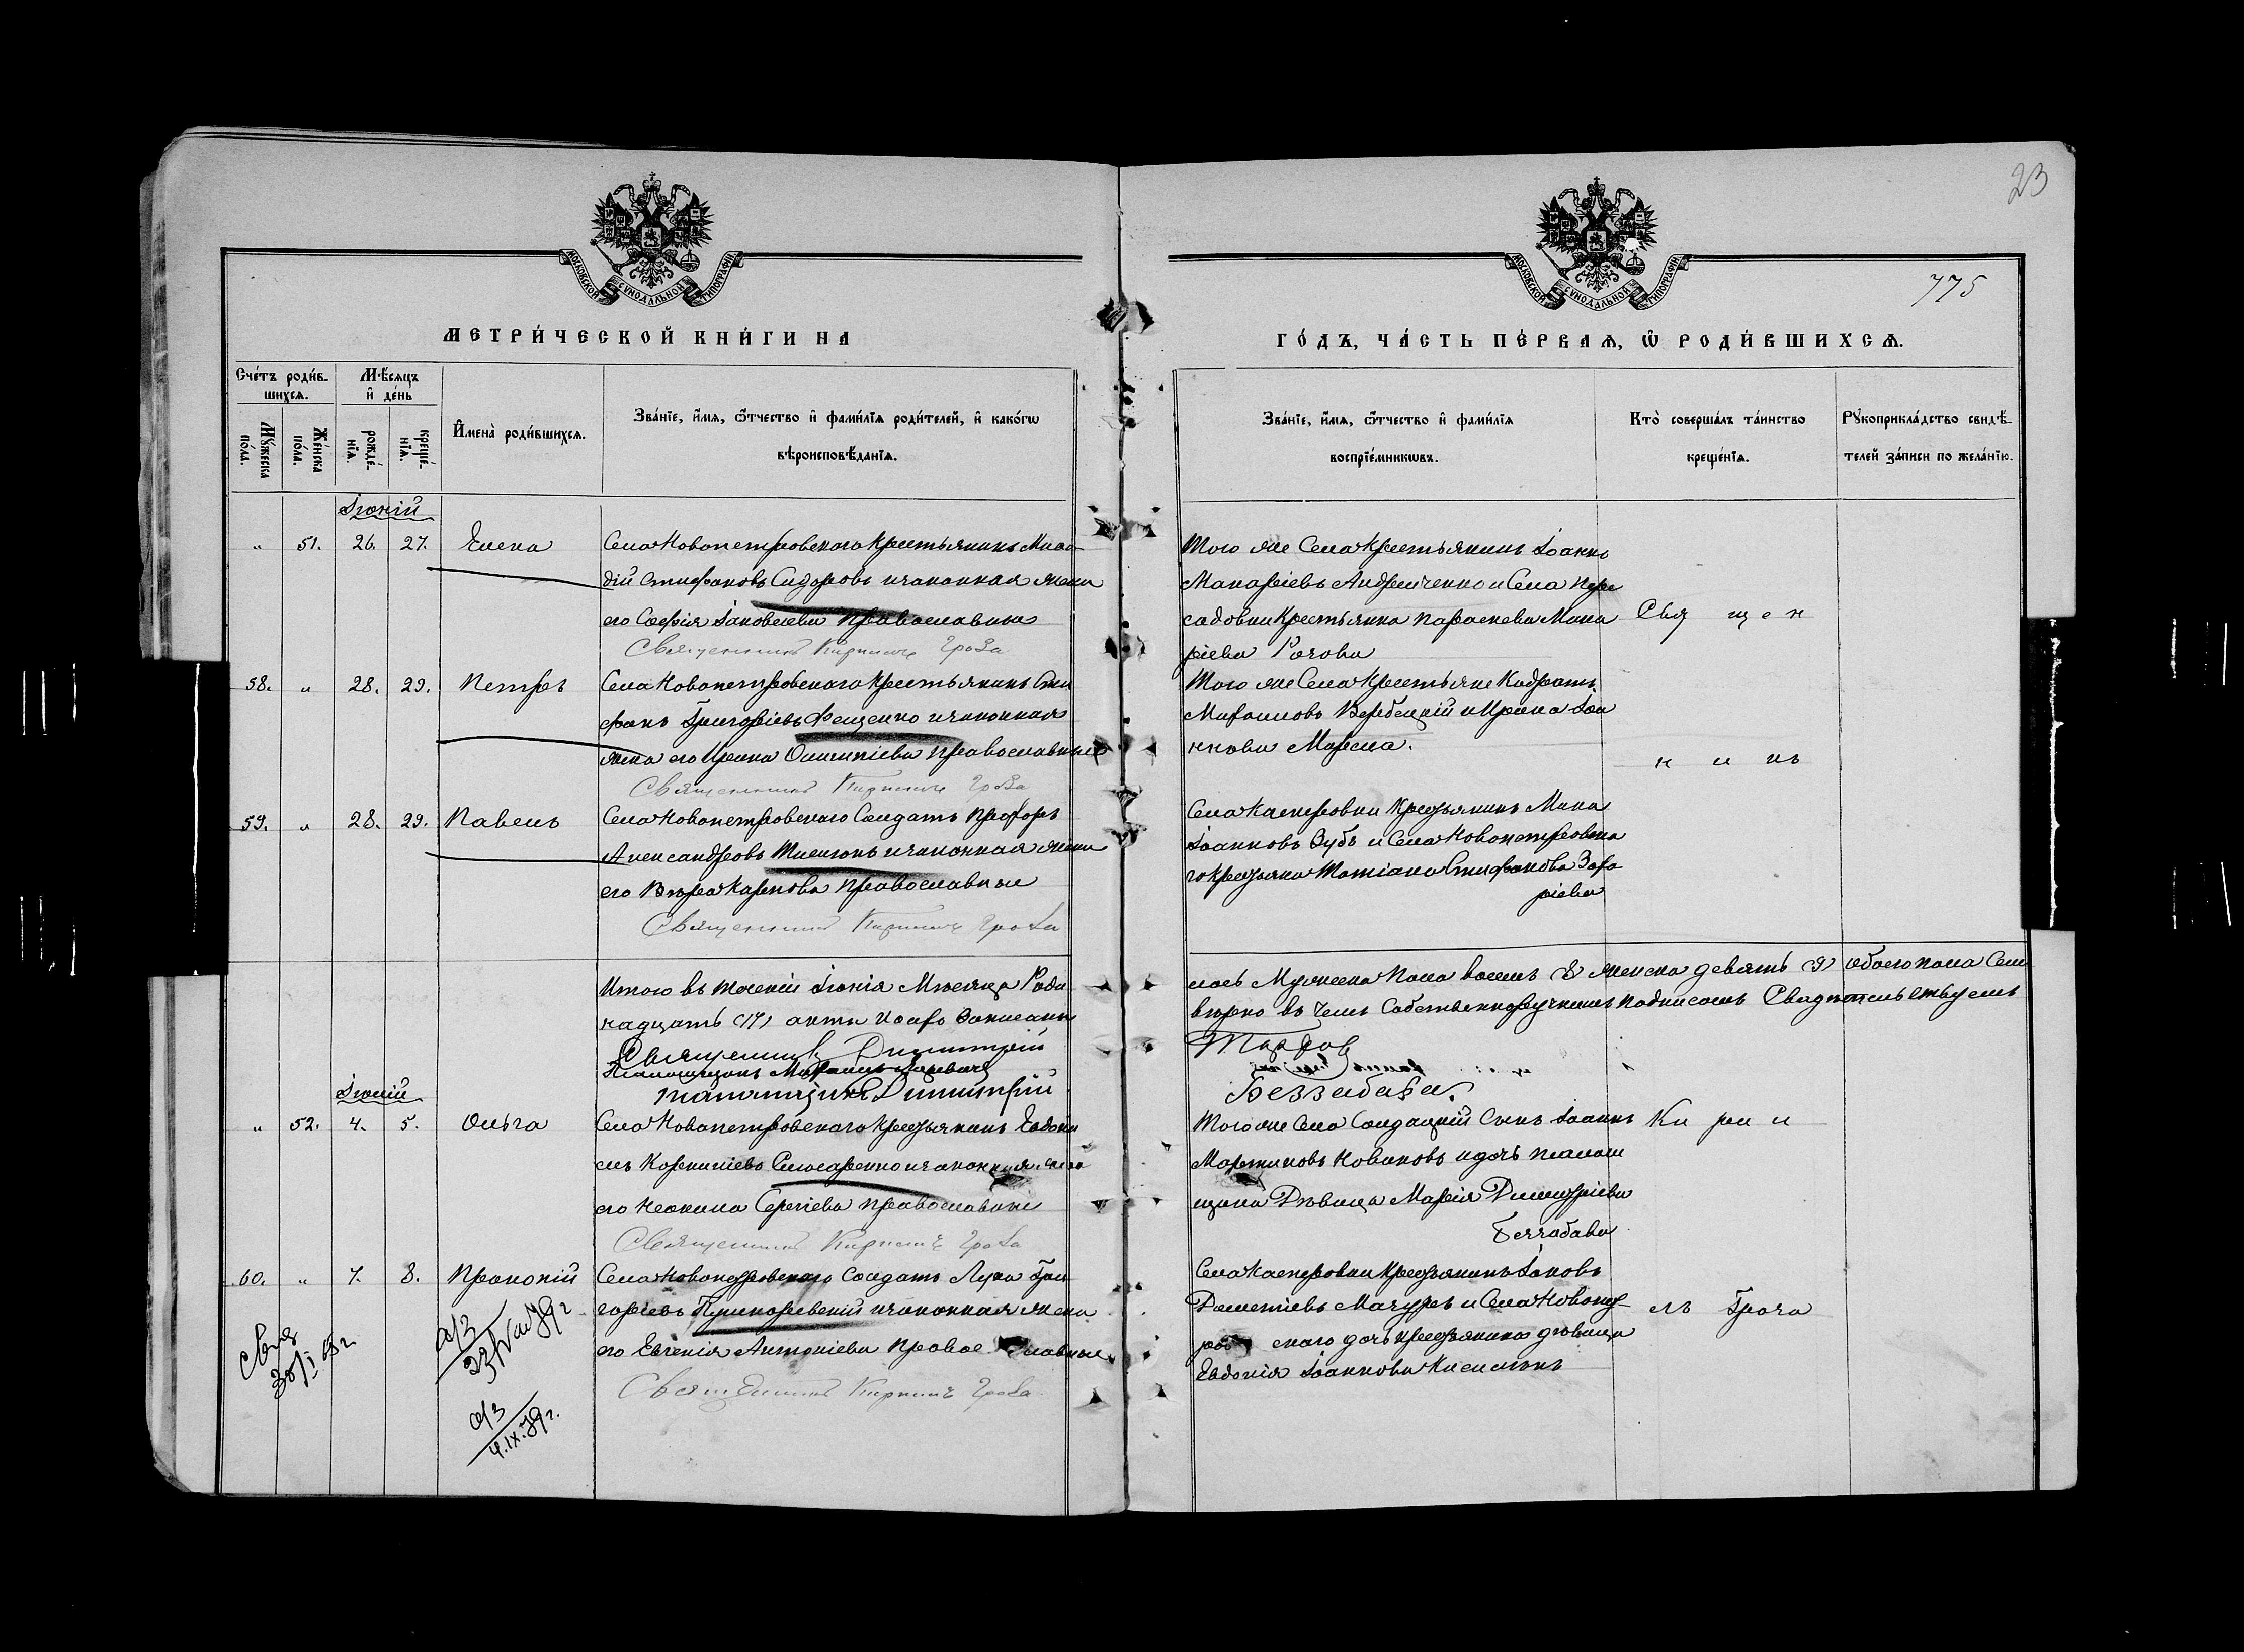 23
МОСКОВСКОЙ СѴНОДАЛЬНОЙ ТИПОГРАФІИ
МОСКОВСКОЙ СѴНОДАЛЬНОЙ ТИПОГРАФІИ
775
МЕТРИ́ЧЕСКОЙ КНИ́ГИ НА
ГО́ДЪ, ЧА́СТЬ ПЕ́РВАѦ, Ѡ РОДИ́ВШИХСѦ.
Сче́тъ роди́в-
шихсѧ.
Мѣ́сяцъ
и де́нь
Мꙋ́жеска
по́ла.
Же́нска
по́ла.
рожде́-
нїѧ.
креще́-
нїѧ.
И҆мена̀ роди́вшихсѧ.
Зва́нїе, и҆́мѧ, ѻ҆́тчество и҆ фами́лїѧ роди́телей, и҆ како́гѡ
вѣроисповѣ́данїѧ.
Зва́нїе, и҆́мѧ, ѻ҆́тчество и҆ фами́лїѧ
воспрїе́мникѡвъ.
Кто̀ соверша́лъ та́инство
креще́нїѧ.
Рꙋкоприкла́дство свидѣ́-
телей за́писи по жела́нїю.
Іюній
" 51. 26. 27. Елена
Села Новопетровскаго Крестьянинъ
дій Стефановъ Сидоровъ и законная жена
его Софія Іаковлева Православные
Священникъ Кириллъ Гроза
Того же Села Крестьянинъ Іоаннъ
Макаріевъ Андрейченко и Села Пере
садовки Крестьянка Параскева Мака
ріева Рогова
Свя щ е н
58. " 28. 29. Петръ
Села Новопетровскаго Крестьянинъ Сте
фанъ Григоріевъ Фещенко и законная
жена его Ирина Олимпіева Православные
Священникъ Кириллъ Гроза
Того же Села Крестьяне Кодратъ
Михаиловъ Вербецкій и Ирина Іоа
ннова
н и къ
59. " 28. 29. Павелъ
Села Новопетровскаго Солдатъ Прохоръ
Александровъ и законная жена
его Вѣра Карпова Православные
Священникъ Кириллъ Гроза
Села Касперовки Крестьянинъ
Іоанновъ Зубъ и Села Новопетровска
го Крестьянка Татіана Стефанова Заха
ріева
Итого въ теченіи Іюнія Мѣсяца Роди
лось Мужеска пола восемь (8) женска девять (9) обоего пола Сем
надцать (17) акты Записаны
вѣрно въ чемъ Собственноручнымъ подписомъ Свидѣтельствуемъ
Священникъ Димитрій
Псаломщикъ
Димитрій
Беззабава.
Іюлій
" 52. 4. 5. Ольга
Села Новопетровскаго Крестьянинъ Евдоки
мъ Корниліевъ Слюсаренко и законная жена
его Неонила Сергіева Православные
Священникъ Кириллъ Гроза
Того же Села Солдатскій Сынъ Іоаннъ
Мартиновъ Новаковъ и дочь псалом
щика Дѣвица Марія Димитріева
Беззабава
Ки ри л
60. " 7. 8. Прокопій
Села Новопетровскаго Солдатъ Лука Гри
горіевъ и законная жена
его Евгенія Антоніева Православные
Священникъ Кириллъ Гроза
Села Касперовки Крестьянинъ Іаковъ
Дометіевъ Мазуръ и Села Новопет
ров скаго дочь Крестьянина дѣвица
Евдокія Іоаннова
лъ Гроза
а/з
4.IX.79г.